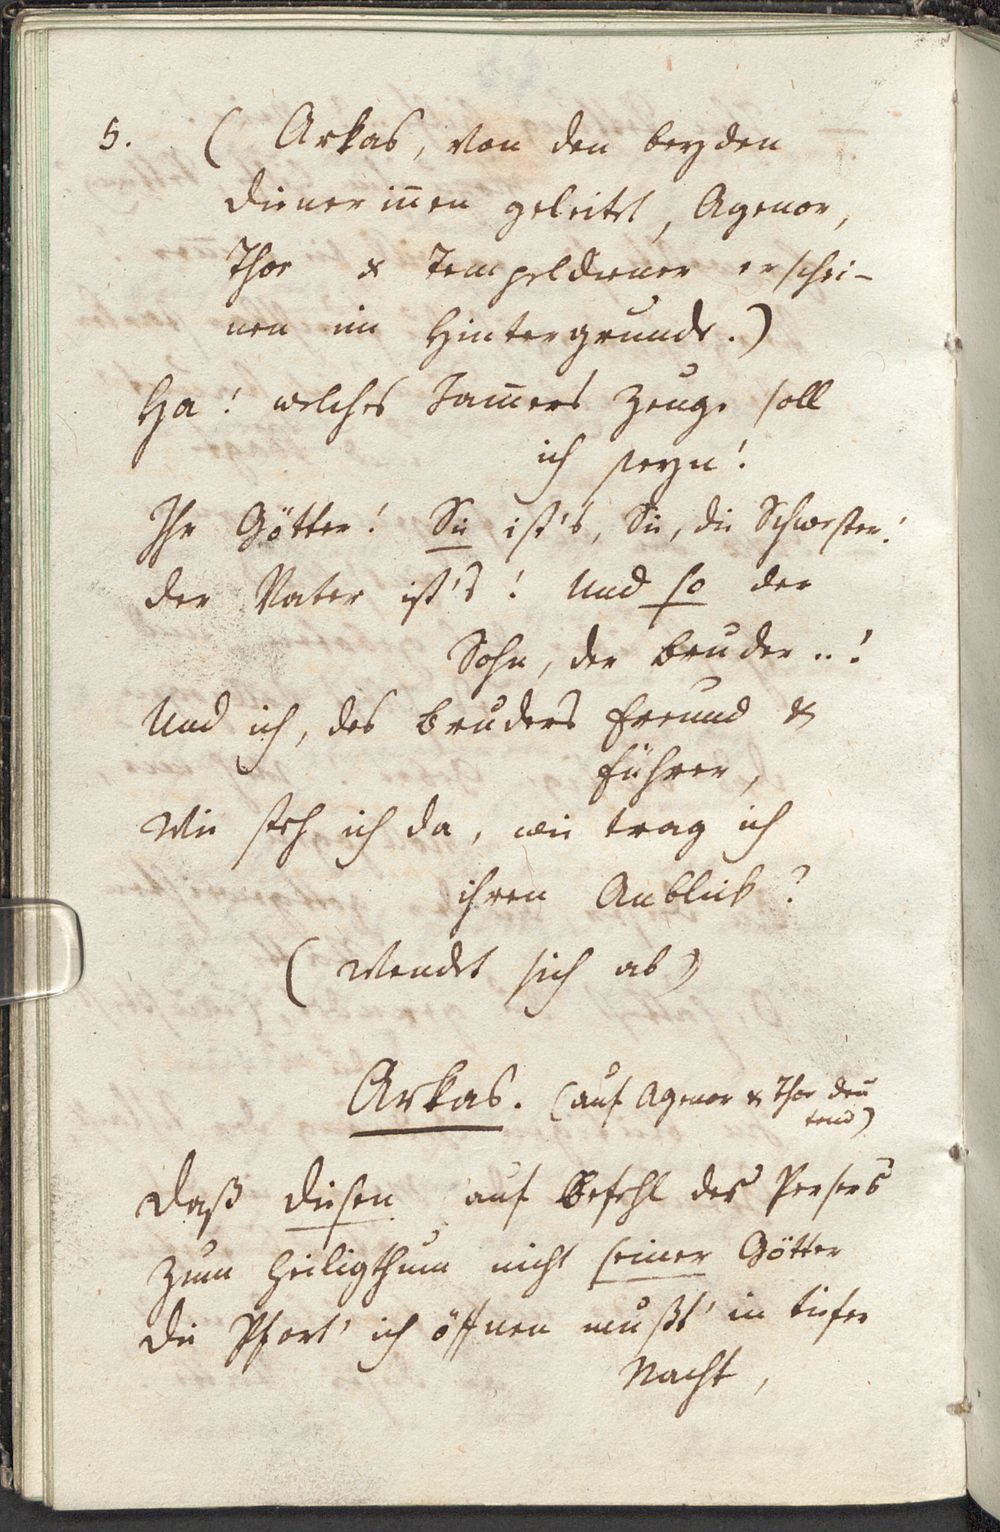 5. (Arkas, von den beyden
Dienerin̅en geleitet, Agenor,
Thor & Tempeldiener erschei-
nen im Hintergrunde.)
Ha! welches Jam̅ers Zeuge soll
ich seyn!
Ihr Götter! Sie ist's, Sie, die Schwester!
Der Vater ist's! Und so der
Sohn, der Bruder..!
Und ich, des Bruders Freund &
Führer,
Wie steh ich da, wie trag ich
ihren Anblick?
(Wendet sich ab)
Arkas. (auf Agenor & Thor deu
tend)
Daß diesen auf Befehl des Persers
Zum Heiligthum nicht seiner Götter
Die Pfort' ich öffnen mußt' in tiefer
Nacht,